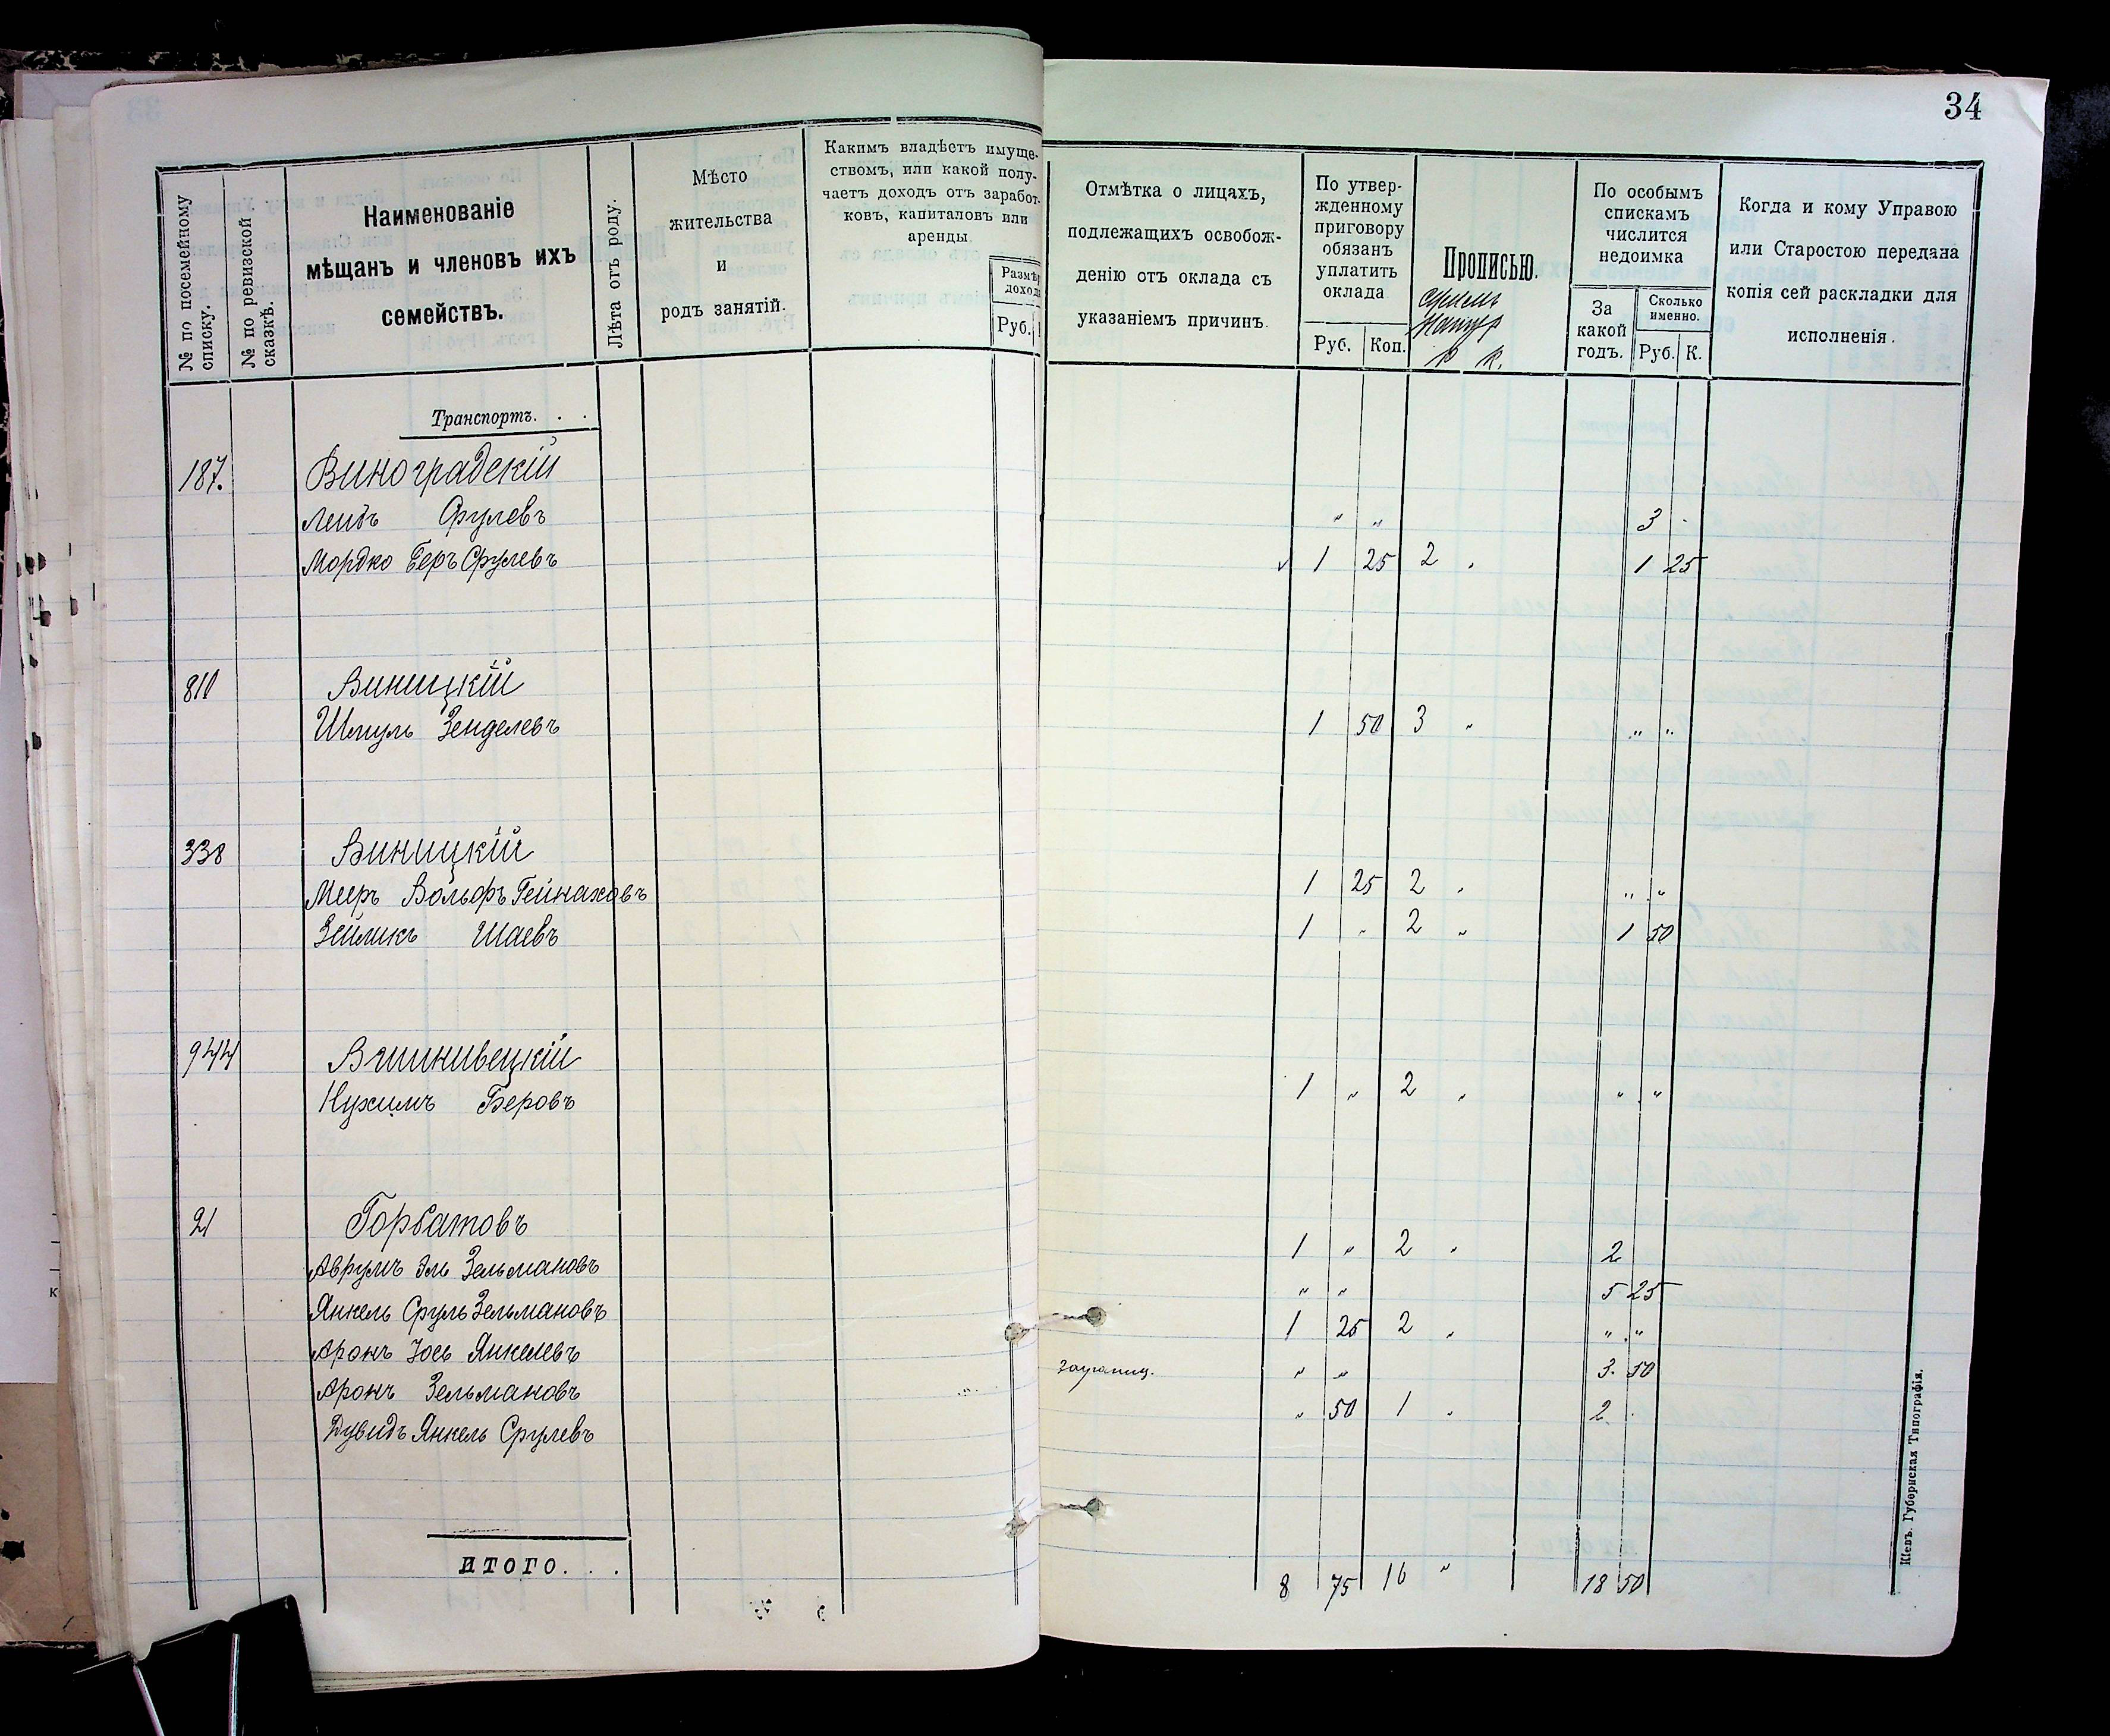 34
№ по посемейному списку.
№ по ревизской сказкѣ.
Наименованіе
мѣщанъ и членовъ ихъ
семействъ.
Лѣта отъ роду.
Мѣсто
жительства
и
родъ занятій.
Какимъ владѣетъ имуще-
ствомъ, или какой полу-
чаетъ доходъ отъ заработ-
ковъ, капиталовъ или
аренды
Размѣр
дохода
Руб.
Отмѣтка о лицахъ,
подлежащихъ освобож-
денію отъ оклада съ
указаніемъ причинъ.
По утвер-
жденному
приговору
обязанъ
уплатить
оклада
Руб. Коп.
Прописью.
р к.
По особымъ
спискамъ
числится
недоимка
За
какой
годъ.
Сколько
именно.
Руб. К.
Когда и кому Управою
или Старостою передана
копія сей раскладки для
исполненія.
Транспортъ. . .
187. Виноградскій
Лейбъ Срулевъ " " 3 -
Мордко Беръ Срулевъ ✓ 1 25 2 " 1 25
810 Виницкій
Шмуль Зенделевъ 1 50 3 " " "
338 Виницкій
Мееръ Вольфъ Гейнаховъ 1 25 2 " " "
Зейликъ Шаевъ 1 " 2 " 1 50
944 Вишнивецкій
Нухимъ Беровъ 1 " 2 " " "
21 Горбатовъ
Аврумъ Эль Зельмановъ 1 " 2 " 2
Янкель Сруль Зельмановъ " " 5 25
Аронъ Іось Янкелевъ 1 25 2 " " "
Аронъ Зельмановъ заграниц. " " 3. 50
Дувидъ Янкель Срулевъ " 50 1 " 2 .
ИТОГО. . . 8 75 16 " 18 50
Кіевъ. Губернская Типографія.